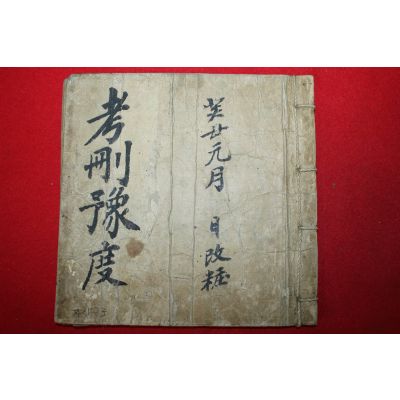 考刪豫度
癸丑元月 日改粧